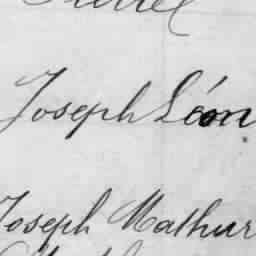 Joseph Léon
Joseph Mathur